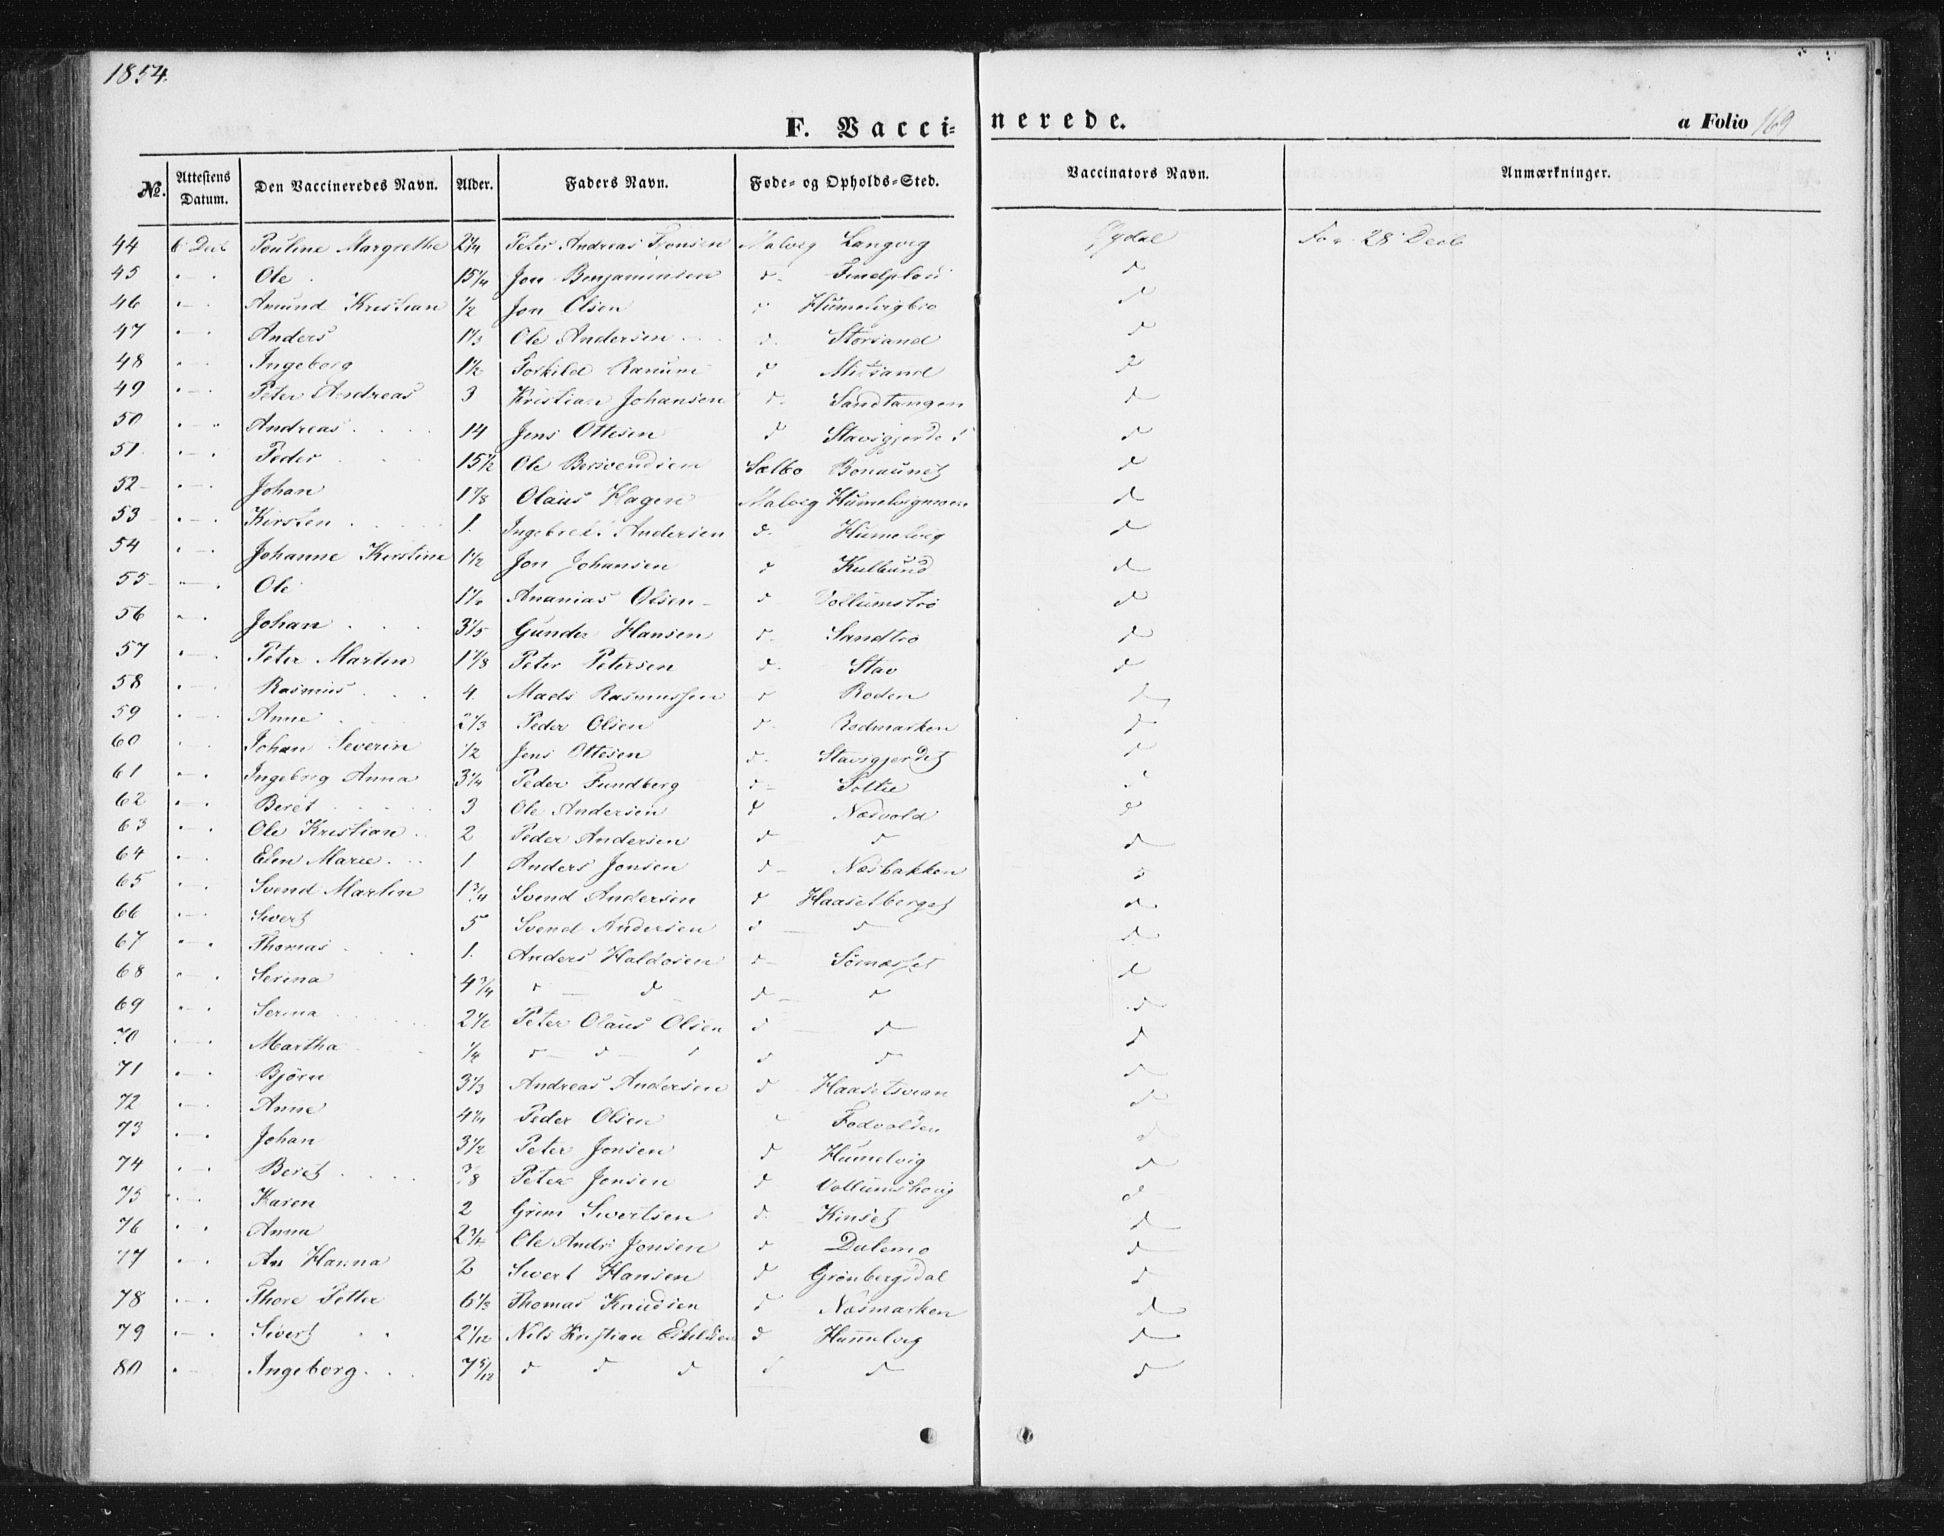 1854.
F. Vaccinerede.
a Folio 169
No. Attestens Datum. Den Vaccineredes Navn. Alder. Faders Navn. Føde- og Opholds-Sted. Vaccinators Navn. Anmærkninger.
44 6 Dec Pouline Margrethe 2 1/4 Peter Andreas Malvig Langvig For 28 Decb
45 " — " Ole 15 1/4 Jon Benjaminsen d d
46 " — " Amund Kristian 1/2 Jon Olsen d Humelvigbro d
47 " — " Anders 1 1/3 Ole Andersen d. Storsand d
48 " — " Ingeborg 1 1/2 Torkild Ranum d Midsand d
49 " — " Peter Andreas 3 Kristian Johansen d. Sandtangen d
50 " — " Andreas 14 Jens Ottesen d Stavsgjerdet d
51 " — " Peder 15 1/2 Ole Bersvendsen Sælbo Bonaunet d
52 " — " Johan 1 1/8 Olaus Hagen Malvig Humelvigmoen d
53 " — " Kirsten 1. Ingebret Andersen d. Humelvig d
54 " — " Johanne Kirstine 1 1/2 Jon Johansen d d
55 " — " Ole Ananias Olsen d Vollumstrø d
56 " — " Johan 3 1/5 Gunder Hansen d. Sandtrø d
57 " — " Peter Martin 1 1/8 Peter Petersen d. Stav d
58 " — " Rasmus 4 Mads Rasmussen d Roden d
59 " — " Anne 2 1/3 Peder Olsen d. Rodmarken d
60 " — " Johan Severin 1/2 Jens Ottesen d. Stavsgjerdet d
61 " — " Ingebrig Anna 3 1/4 Peder Fundberg d
62 " — " Beret 3 Ole Andersen d Næsvold d
63 " — " Ole Kristian 2 Peder Andersen d d d
64 " — " Elen Marie 1 Anders Jonsen d Næsbakken d
65 " — " Svend Martin 1 3/4 Svend Andersen d Haasetberget d
66 " — " Sivert 5 Svend Andersen d d d
67 " — " Thomas 1. Anders Haldosen d Sørnæsset d
68 " — " Serina 4 3/4 d — d d d d
69 " — " Serina 2 1/2 Peter Olaus Olsen d d d
70 " — " Martha 1/4 d — d — d d d d
71 " — " Bjørn 3 1/3 Andreas Andersen d Haasetsvean d
72 " — " Anne 4 1/4 Peder Olsen d Fadvolden d
73 " — " Johan 3 1/2 Peter Jonsen d Humelvig d
74 " — " Beret 3/8 Peter Jonsen d Vollumshoug d
75 " — " Karen 2 Grim Sivertsen d. Kinset d
76 " — " Anna 2 3/4 Ole Andr Jonsen d Dalemo d
77 " — " An Hanna 2 Sivert Hansen d Grønbergsdal d
78 " — " Thore Petter 6 1/3 Thomas Knudsen d Næsmarken d
79 " — " Sivert 2 1/12 Nils Kristian Eskildsen d Humelvig d
80 " — Ingeborg 7 5/12 d d d d d d